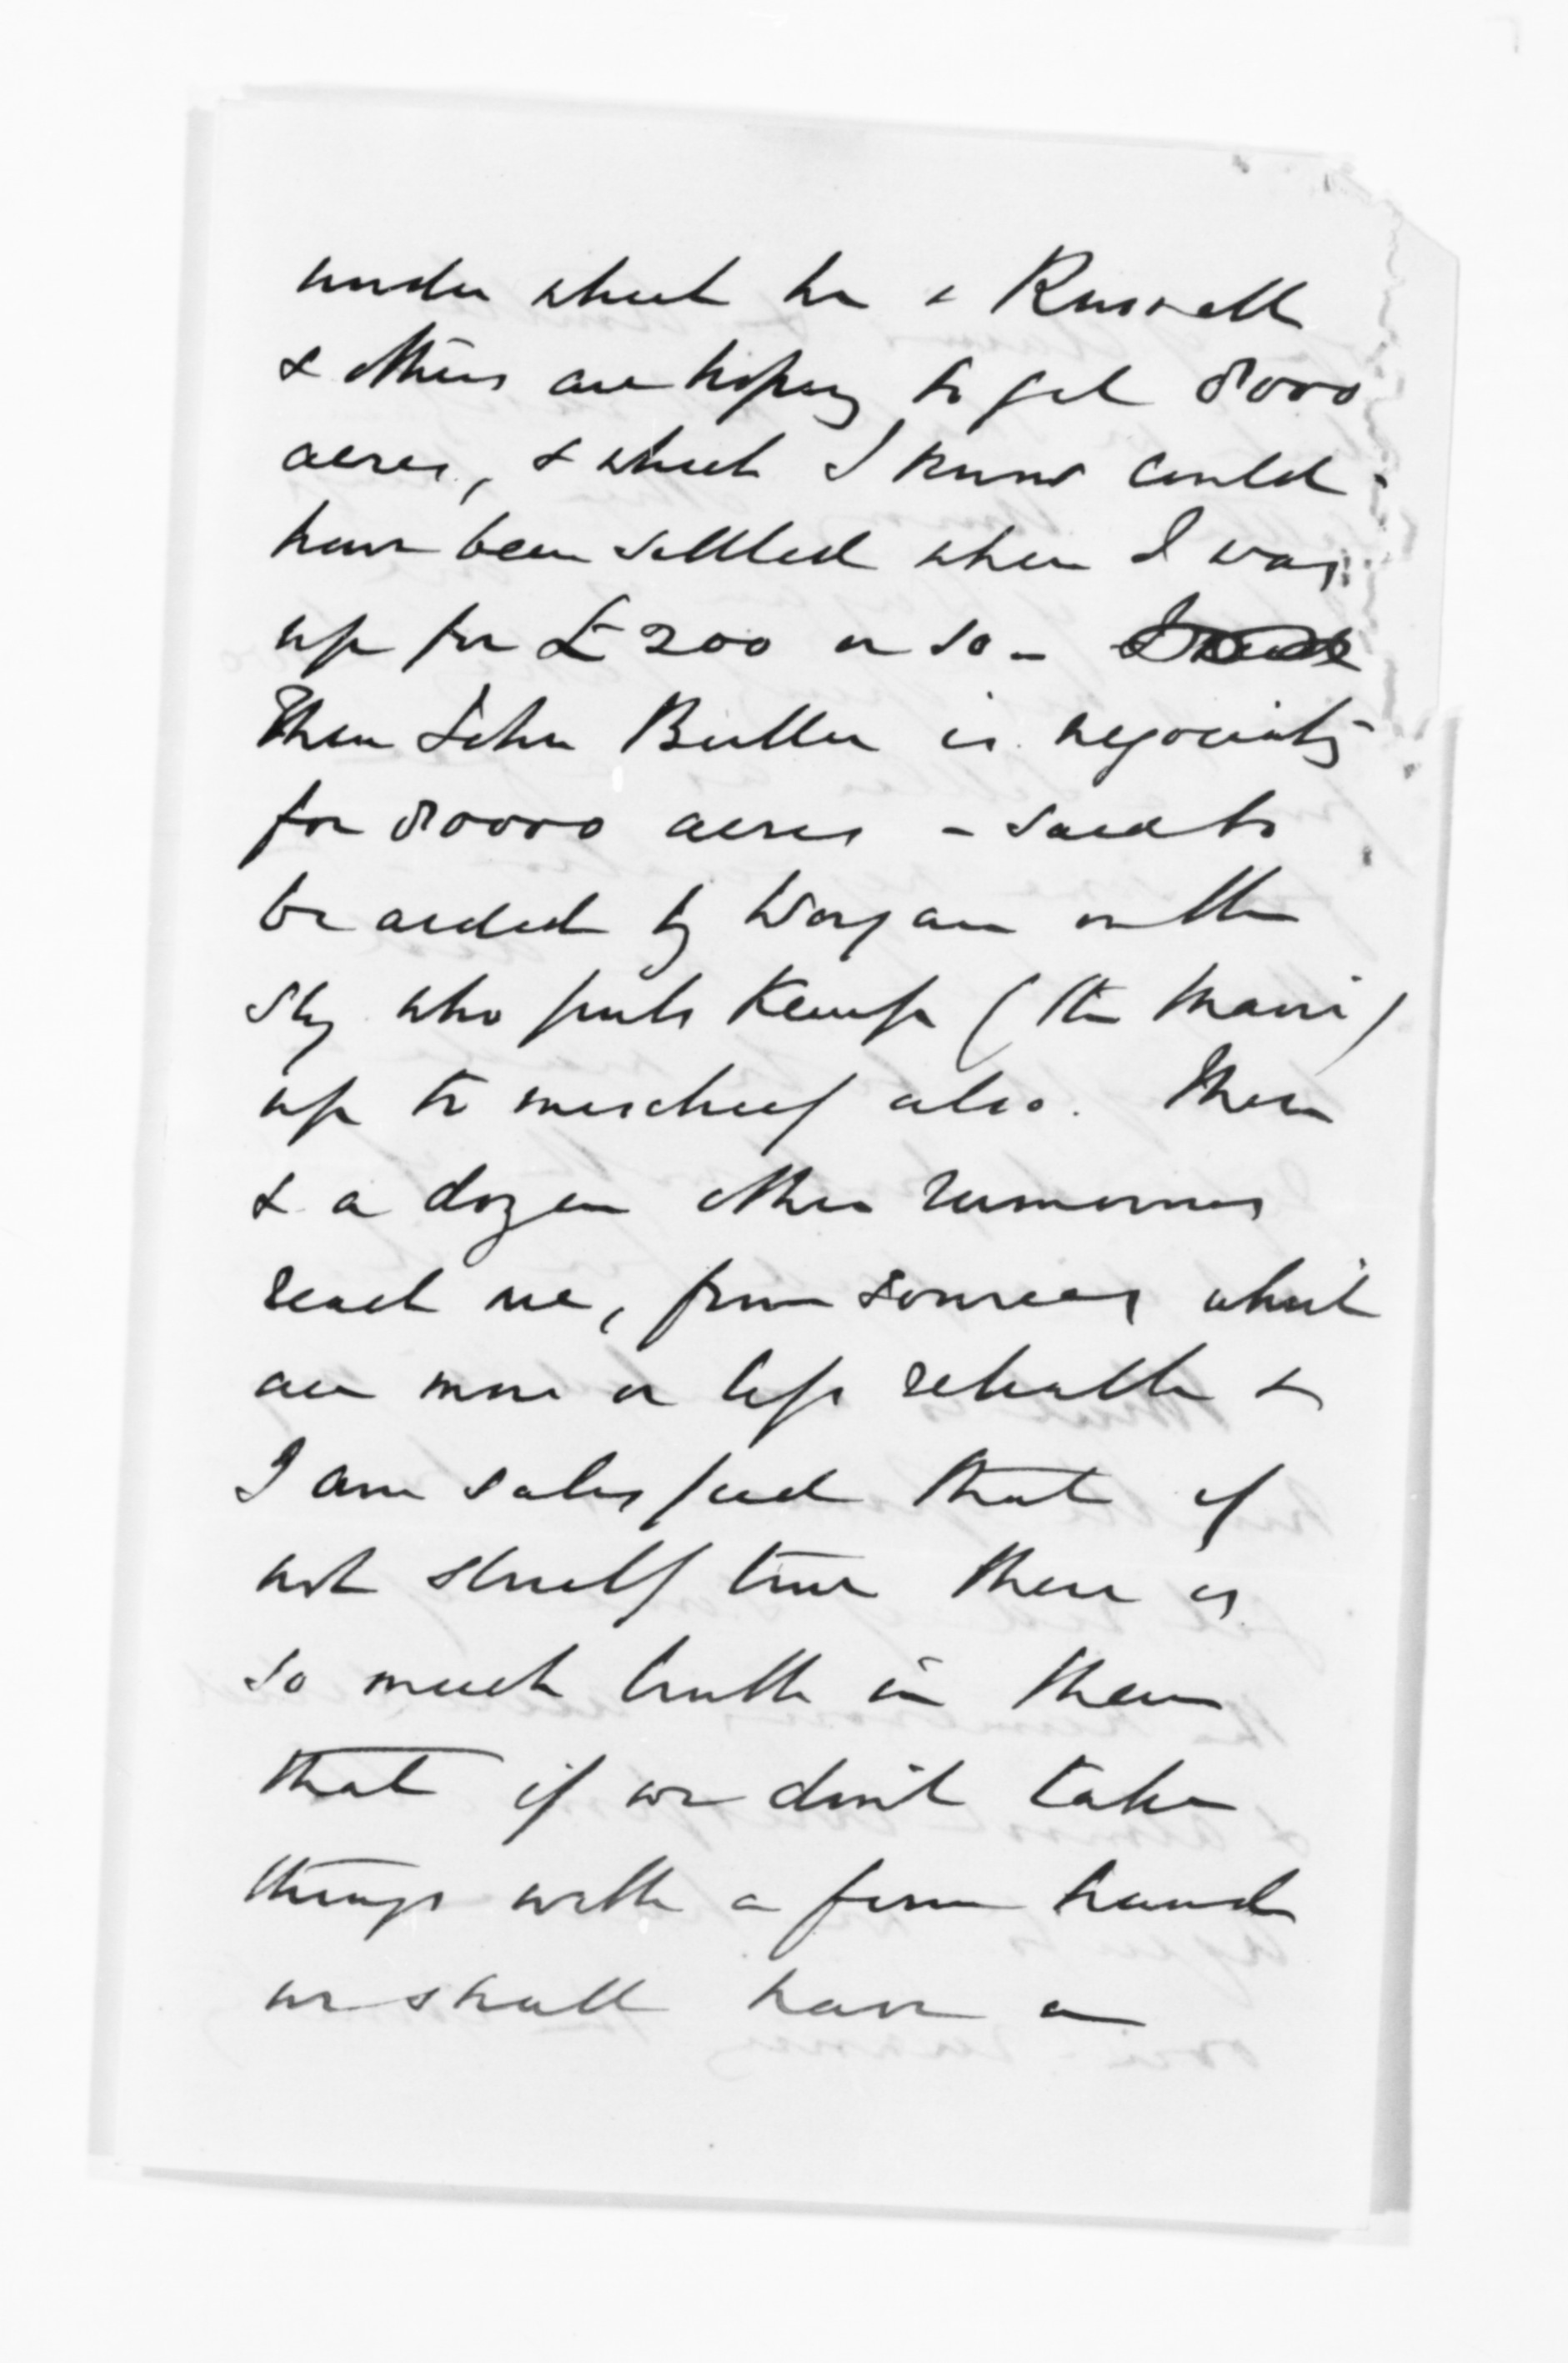 under which he & Russell
& others are hoping to get 8000
acres, & which I know could
have been settled when I was
up for £200 or so -
Then John Buller is negociatg
for 80000 acres - said to
be aided by Worgan on the
sly who puts Kemp (the Maori)
up to mischief also. These
& a dozen other rumours
reach me, from sources which
are more or less reliable &
I am satisfied that if
not strictly true there is
so much truth in them
that if we don't take
things with a firm hand
we shall have a